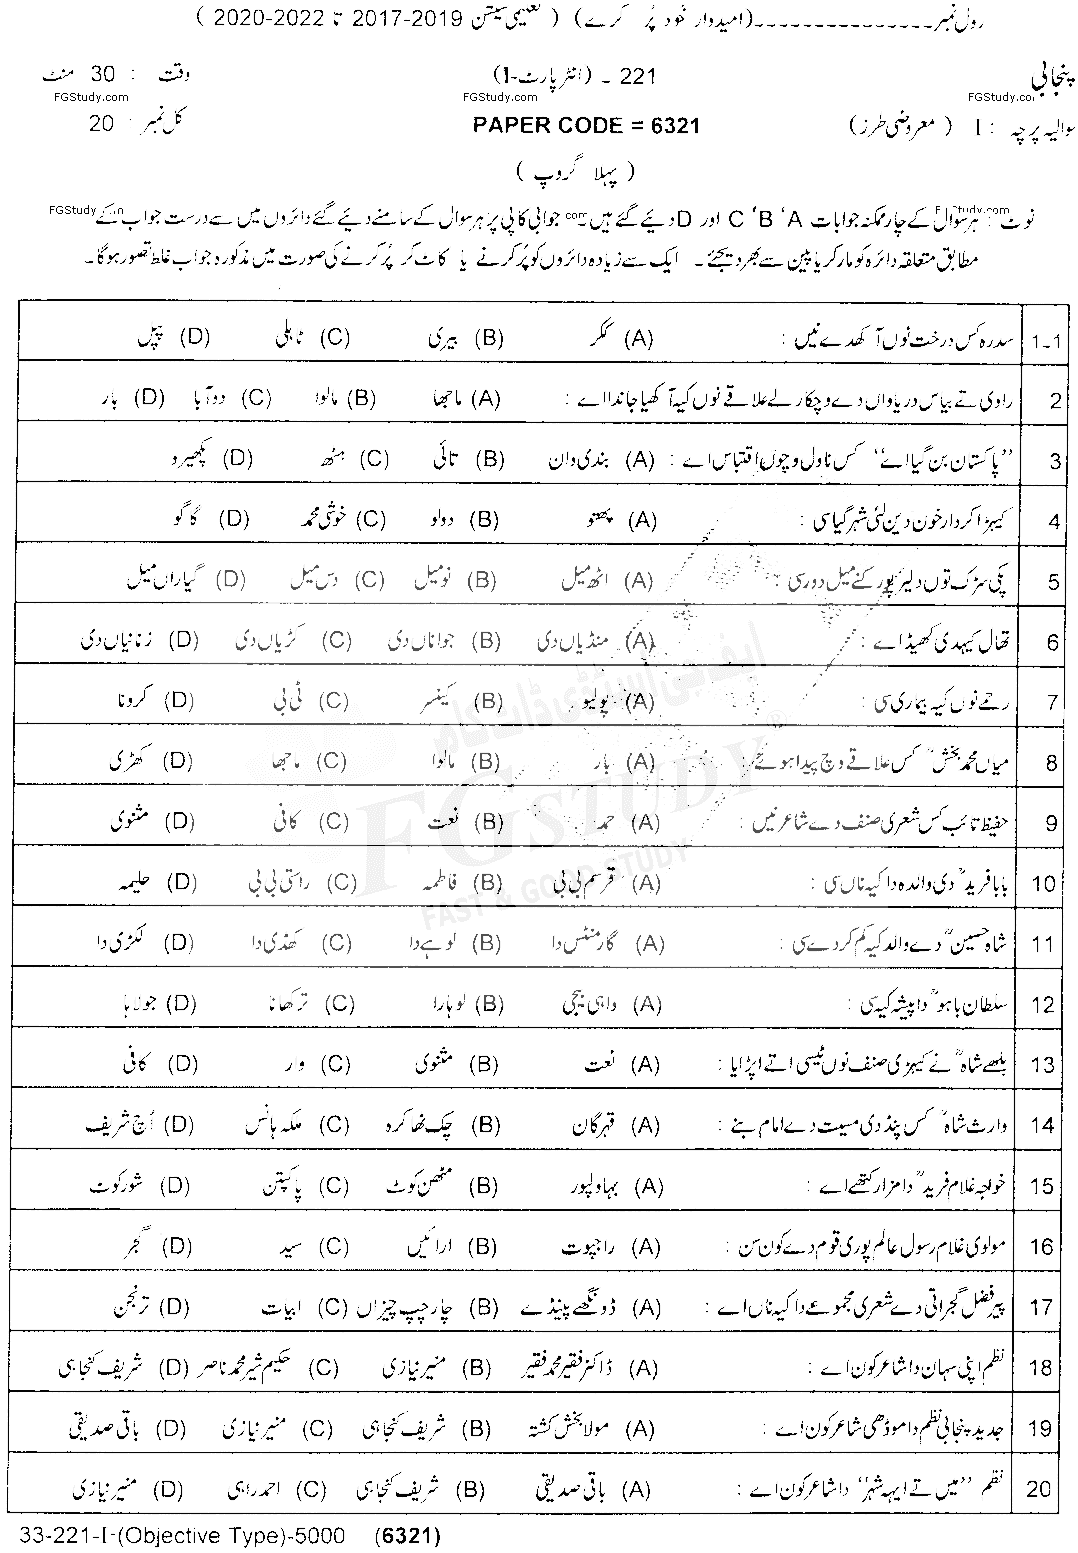 رول نمبر ---------------(امیدوار خود پُر کرے) ( تعلیمی سیشن 2019-2017 تا 2022-2020 )
پنجابی 221 - (انٹر پارٹ-I) وقت : 30 منٹ
FGStudy.com FGStudy.com FGStudy.com
سوالیہ پرچہ : I ( معروضی طرز) PAPER CODE = 6321 کل نمبر : 20
( پہلا گروپ )
نوٹ : ہر سوال کے چار ممکنہ جوابات A ' B ' C اور D دیئے گئے ہیں۔ جوابی کاپی پر ہر سوال کے سامنے دیئے گئے دائروں میں سے درست جواب کے
مطابق متعلقہ دائرہ کو مارکر یا پین سے بھر دیجئے۔ ایک سے زیادہ دائروں کو پُر کرنے یا کاٹ کر پُر کرنے کی صورت میں مذکورہ جواب غلط تصور ہوگا۔
1-1 سدرہ کس درخت نوں آکھدے نیں : (A) ککر (B) بیری (C) ٹاہلی (D) پپل
2 راوی تے بیاس دریاواں دے وچکارلے علاقے نوں کیہ آکھیا جاندا اے : (A) ماجھا (B) مالوا (C) دوآبا (D) بار
3 "پاکستان بن گیا اے" کس ناول وچوں اقتباس اے : (A) بندی وان (B) تائی (C) ہٹھ (D) پکھیرو
4 کیہڑا کردار خون دین لئی شہر گیا سی : (A) پھتو (B) دولو (C) خوشی محمد (D) گاگو
5 پکی سڑک توں دلیر پور کنے میل دور سی : (A) اٹھ میل (B) نو میل (C) دس میل (D) گیاراں میل
6 تھال کیہدی کھیڈ اے : (A) منڈیاں دی (B) جواناں دی (C) کڑیاں دی (D) زنانیاں دی
7 رحمے نوں کیہ بیماری سی : (A) پولیو (B) کینسر (C) ٹی بی (D) کرونا
8 میاں محمد بخشؒ کس علاقے وچ پیدا ہوئے : (A) بار (B) مالوا (C) ماجھا (D) کھڑی
9 حفیظ تائب کس شعری صنف دے شاعر نیں : (A) حمد (B) نعت (C) کافی (D) مثنوی
10 بابا فریدؒ دی والدہ دا کیہ ناں سی : (A) قرسم بی بی (B) فاطمہ (C) راستی بی بی (D) حلیمہ
11 شاہ حسینؒ دے والد کیہ کم کردے سی : (A) گارمنٹس دا (B) لوہے دا (C) کھڈی دا (D) لکڑی دا
12 سلطان باہوؒ دا پیشہ کیہ سی : (A) واہی بیجی (B) لوہارا (C) ترکھانا (D) جولاہا
13 بلھے شاہؒ نے کیہڑی صنف نوں ٹیسی اتے اپڑایا : (A) نعت (B) مثنوی (C) ور (D) کافی
14 وارث شاہؒ کس پنڈ دی مسیت دے امام بنے : (A) قہرگان (B) چک ٹھاکرہ (C) ملکہ ہانس (D) اُچ شریف
15 خواجہ غلام فریدؒ دا مزار کتھے اے : (A) بہاولپور (B) مٹھن کوٹ (C) پاکپتن (D) شورکوٹ
16 مولوی غلام رسول عالم پوری قوم دے کون سن : (A) راجپوت (B) ارائیں (C) سید (D) گجر
17 پیر فضل گجراتی دے شعری مجموعے دا کیہ ناں اے : (A) ڈونگھے پینڈے (B) چارچپ چیزاں (C) ابیات (D) ترنجن
18 نظم اپنی سہان دا شاعر کون اے : (A) ڈاکٹر فقیر محمد فقیر (B) منیر نیازی (C) حکیم شیر محمد ناصر (D) شریف کنجاہی
19 جدید پنجابی نظم دا موڈھی شاعر کون اے : (A) مولا بخش کشتہ (B) شریف کنجاہی (C) منیر نیازی (D) باقی صدیقی
20 نظم "میں تے ایہہ شہر" دا شاعر کون اے : (A) باقی صدیقی (B) شریف کنجاہی (C) احمد راہی (D) منیر نیازی
ایف جی اسٹڈی ڈاٹ کام
FGSTUDY®
FAST & GOOD STUDY
33-221-I-(Objective Type)-5000 (6321)